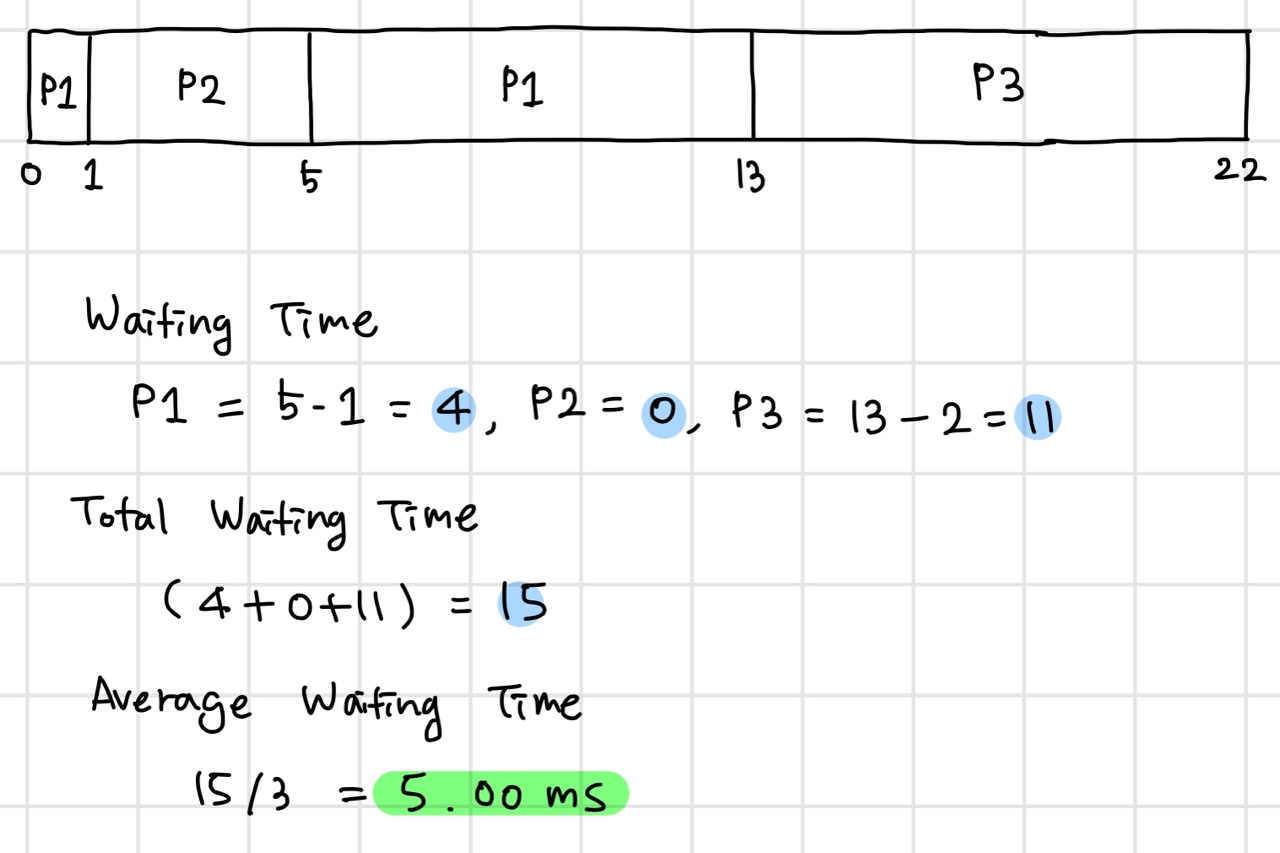 P1 P2 P1 P3
0 1 5 13 22
Waiting Time
P1 = 5-1 = 4, P2 = 0, P3 = 13 - 2 = 11
Total Waiting Time
(4+0+11) = 15
Average Waiting Time
15/3 = 5.00 ms